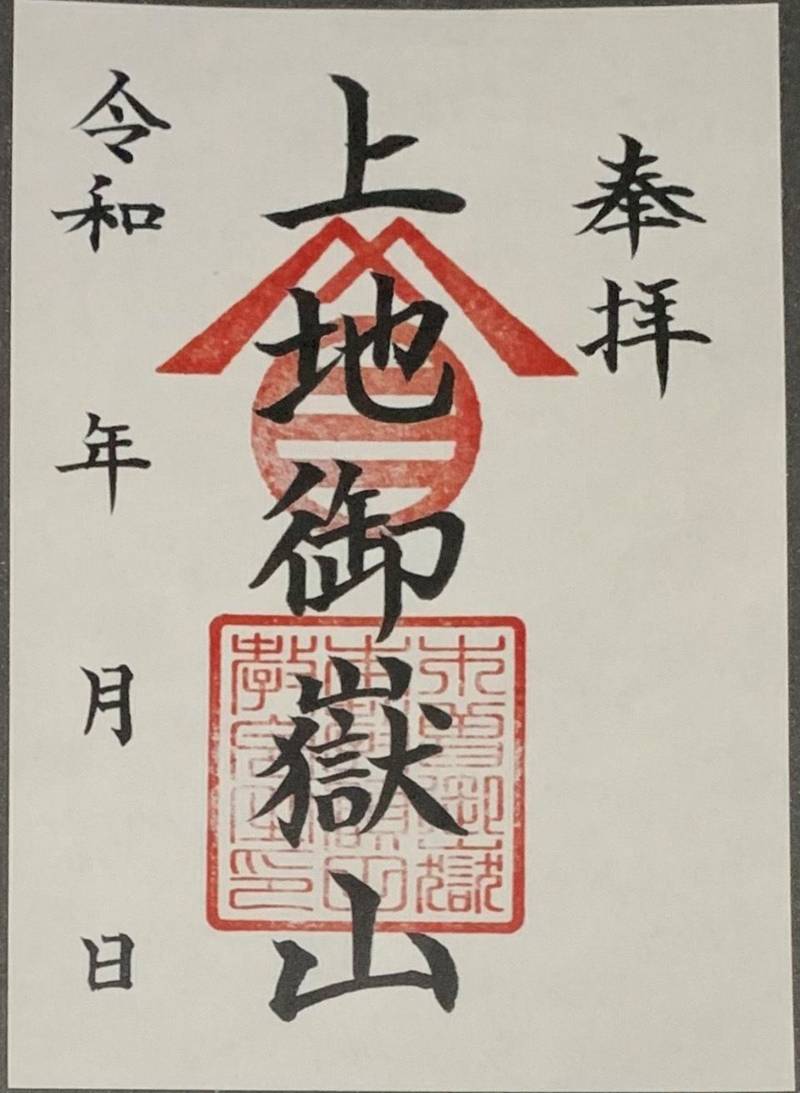 奉拝
上地御嶽山
令和 年 月 日